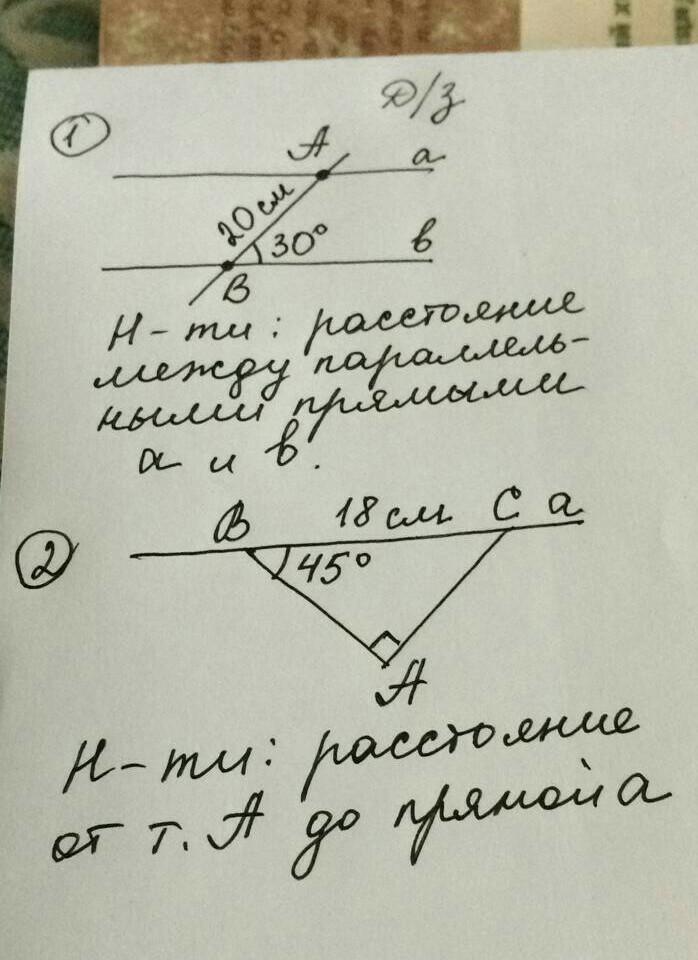 Д/з
1
A
a
20 см
30°
B
в
Н-ти: расстояние
между параллель-
ными прямыми
а и в.
2
B
18 см
C
a
45°
A
Н-ти: расстояние
от т. А до прямой а